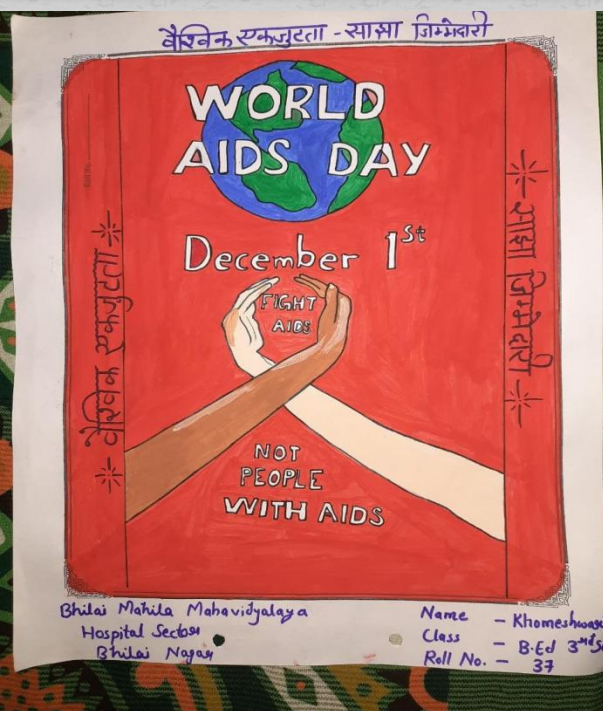 वैश्विक एकजुटता - साझा जिम्मेदारी
WORLD
AIDS DAY
December 1st
FIGHT
AIDS
NOT
PEOPLE
WITH AIDS
वैश्विक एकजुटता
साझा जिम्मेदारी
Bhilai Mahila Mahavidyalaya
Hospital Sector
Bhilai Nagar
Name - Khomeshwar
Class - B.Ed 3rd S
Roll No. - 37